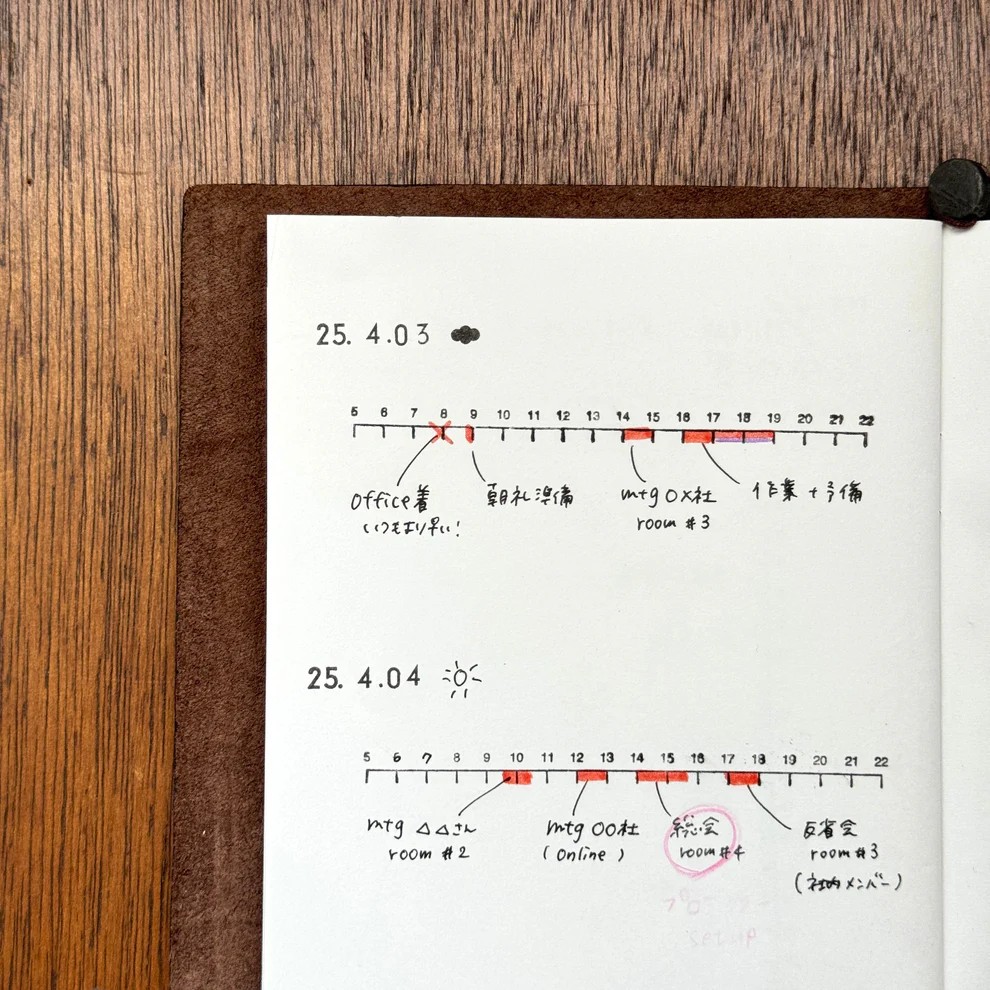 25. 4.03
5 6 7 8 9 10 11 12 13 14 15 16 17 18 19 20 21 22
Office着
いつもより早い!
朝礼準備
mtg ○×社
room #3
作業 + 予備
25. 4.04
5 6 7 8 9 10 11 12 13 14 15 16 17 18 19 20 21 22
mtg △△さん
room #2
mtg ○○社
(Online)
総会
room #4
反省会
room #3
(社内メンバー)
set up